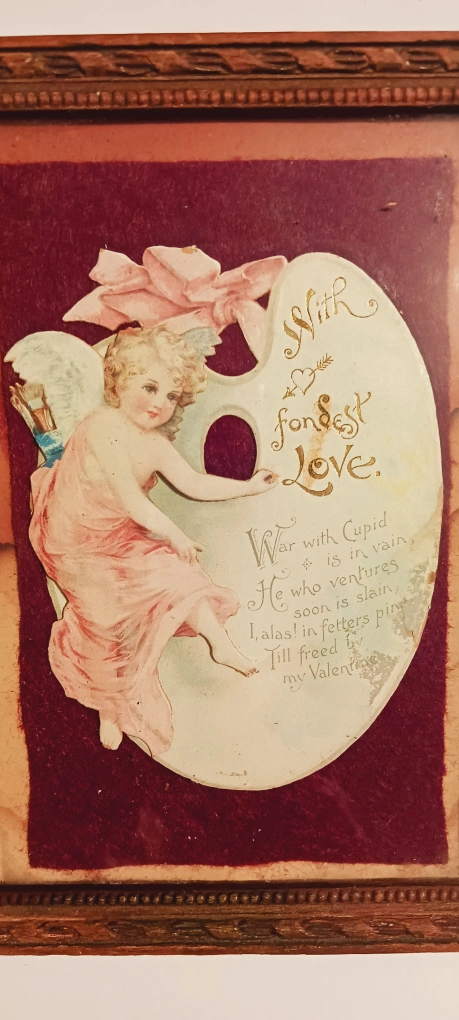 With
fondest
Love.
War with Cupid
is in vain,
He who ventures
soon is slain,
I, alas! in fetters
Till freed by
my Valentine